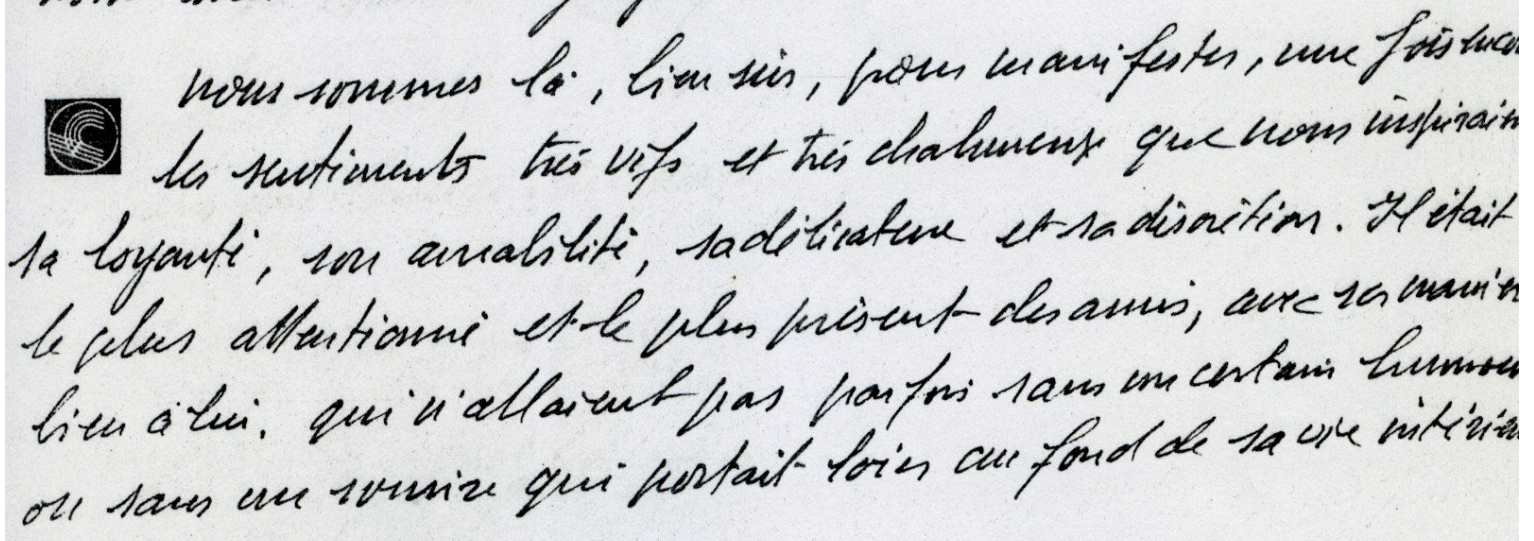 nous sommes là, bien sûr, pour manifester, une fois
les sentiments très vifs et très chaleureux que nous
sa loyauté, son amabilité, sa délicatesse et sa discrétion. Il était
le plus attentionné et le plus présent des amis, avec ses
bien à lui, qui n'allaient pas parfois sans un certain
ou sans un sourire qui portait loin au fond de sa vie